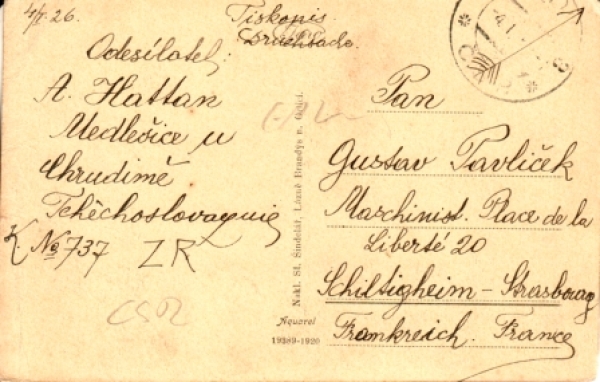 4/I. 26.
Tiskopis
Drucksache.
Odesílatel:
A. Hattan
Medlešice u
Chrudimě
Tchéchoslovaquie
No 737
ZR
ČSR
Nakl. St. Šindelář, Lázně Brandýs n. Orlicí.
Aquarel
19389-1920
Pan
Gustav Pavlíček
Marchinist. Place de la
Liberté 20
Schiltigheim - Strasbourg
Frankreich. France